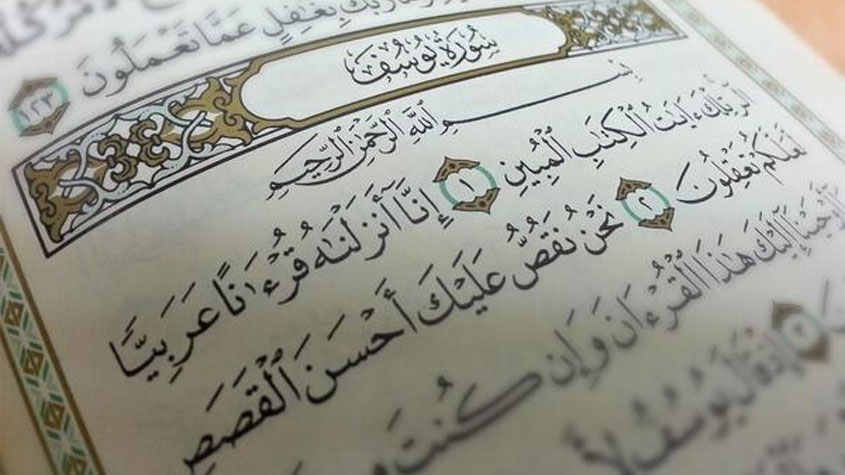 بِغَٰفِلٍ عَمَّا تَعْمَلُونَ ١٢٣
سُورَةُ يُوسُفَ
بِسْمِ ٱللَّهِ ٱلرَّحْمَٰنِ ٱلرَّحِيمِ
الٓر تِلْكَ ءَايَٰتُ ٱلْكِتَٰبِ ٱلْمُبِينِ ١ إِنَّآ أَنزَلْنَٰهُ قُرْءَٰنًا عَرَبِيًّا
لَّعَلَّكُمْ تَعْقِلُونَ ٢ نَحْنُ نَقُصُّ عَلَيْكَ أَحْسَنَ ٱلْقَصَصِ
أَوْحَيْنَآ إِلَيْكَ هَٰذَا ٱلْقُرْءَانَ وَإِن كُنتَ
٣ إِذْ قَالَ يُوسُفُ